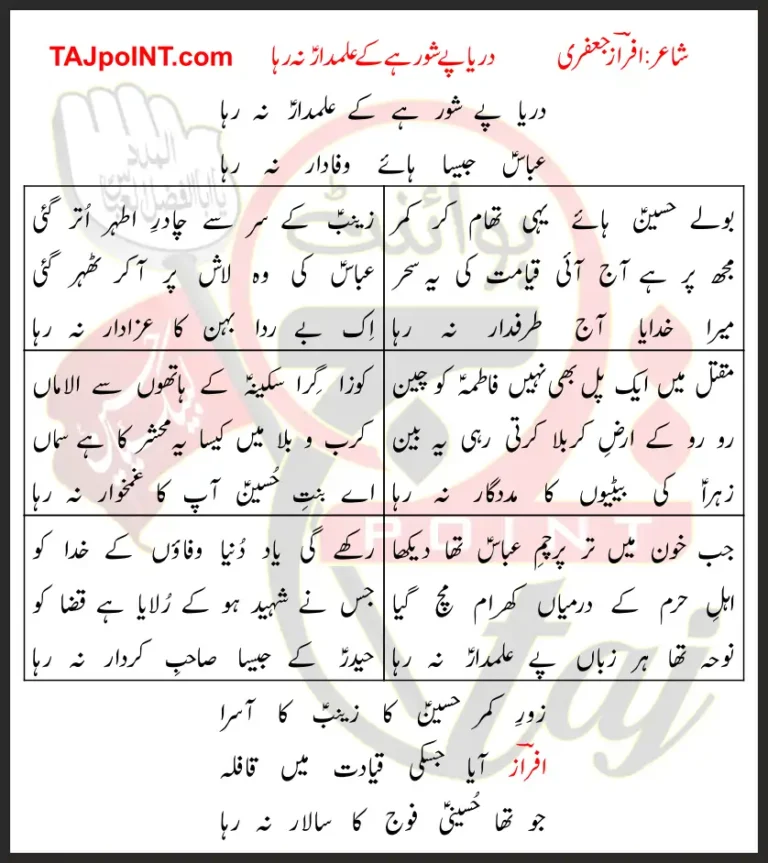 شاعر: افرازؔ جعفری دریا پے شور ہے کے علمدارؑ نہ رہا TAJpoINT.com
دریا پے شور ہے کے علمدارؑ نہ رہا
عباسؑ جیسا ہائے وفادار نہ رہا
بولے حسینؑ ہائے یہی تھام کر کمر
مجھ پر ہے آج آئی قیامت کی یہ سحر
میرا خدایا آج طرفدار نہ رہا
زینبؑ کے سر سے چادرِ اطہر اُتر گئی
عباسؑ کی وہ لاش پر آ کر ٹھہر گئی
اِک بے ردا بہن کا عزادار نہ رہا
مقتل میں ایک پل بھی نہیں فاطمہؑ کو چین
رو رو کے ارضِ کربلا کرتی رہی یہ بین
زہراؑ کی بیٹیوں کا مددگار نہ رہا
کوزا گِرا سکینہؑ کے ہاتھوں سے الاماں
کرب و بلا میں کیسا یہ محشر کا ہے سماں
اے بنتِ حُسینؑ آپ کا غمخوار نہ رہا
جب خون میں تر پرچمِ عباسؑ تھا دیکھا
اہلِ حرم کے درمیاں کھرام مچ گیا
نوحہ تھا ہر زباں پے علمدارؑ نہ رہا
رکھے گی یاد دُنیا وفاؤں کے خدا کو
جس نے شہید ہو کے رُلایا ہے قضا کو
حیدرؑ کے جیسا صاحبِ کردار نہ رہا
زورِ کمر حسینؑ کا زینبؑ کا آسرا
افرازؔ آیا جسکی قیادت میں قافلہ
جو تھا حُسینیؑ فوج کا سالار نہ رہا
پوائنٹ
تاج
POINT
taj